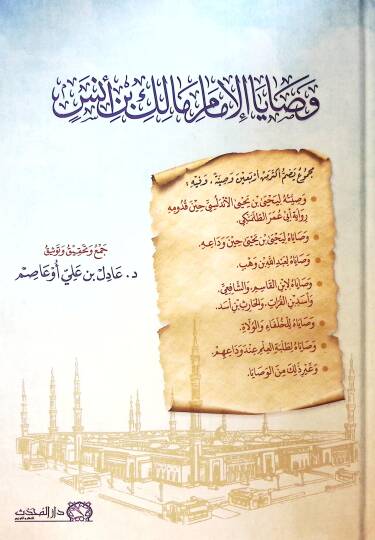 وَصَايَا الإِمَامِ مَالِكِ بْنِ أَنَسٍ
مجموعٌ يَضُمُّ أكثرَ مِن أربعينَ وصيّةً، وَفِيْهِ:
• وَصِيَّتُهُ لِيَحْيَى بْنِ يَحْيَى الأَنْدَلُسِيِّ حِيْنَ قُدُومِهِ
رِوَايَة أَبِي عُمَرَ الطَّلَمَنْكِي.
• وَصَايَاهُ لِيَحْيَى بْنِ يَحْيَى حِيْنَ وَدَاعِهِ.
• وَصَايَاهُ لِعَبْدِ اللهِ بْنِ وَهْبٍ.
• وَصَايَاهُ لِابْنِ القَاسِمِ، وَالشَّافِعِيِّ،
وَأَسَدِ بْنِ الفُرَاتِ، وَالحَارِثِ بْنِ أَسَدٍ.
• وَصَايَاهُ لِلْخُلَفَاءِ وَالوُلَاةِ.
• وَصَايَاهُ لِطَلَبَةِ العِلْمِ عِنْدَ وَدَاعِهِمْ.
• وَغَيْرُ ذَلِكَ مِنَ الوَصَايَا.
جَمْعُ وَتَحْقِيْقُ وَتَوْثِيْقُ
د. عَادِل بن عَلِيّ أُوعَاصِم
دار المحدث